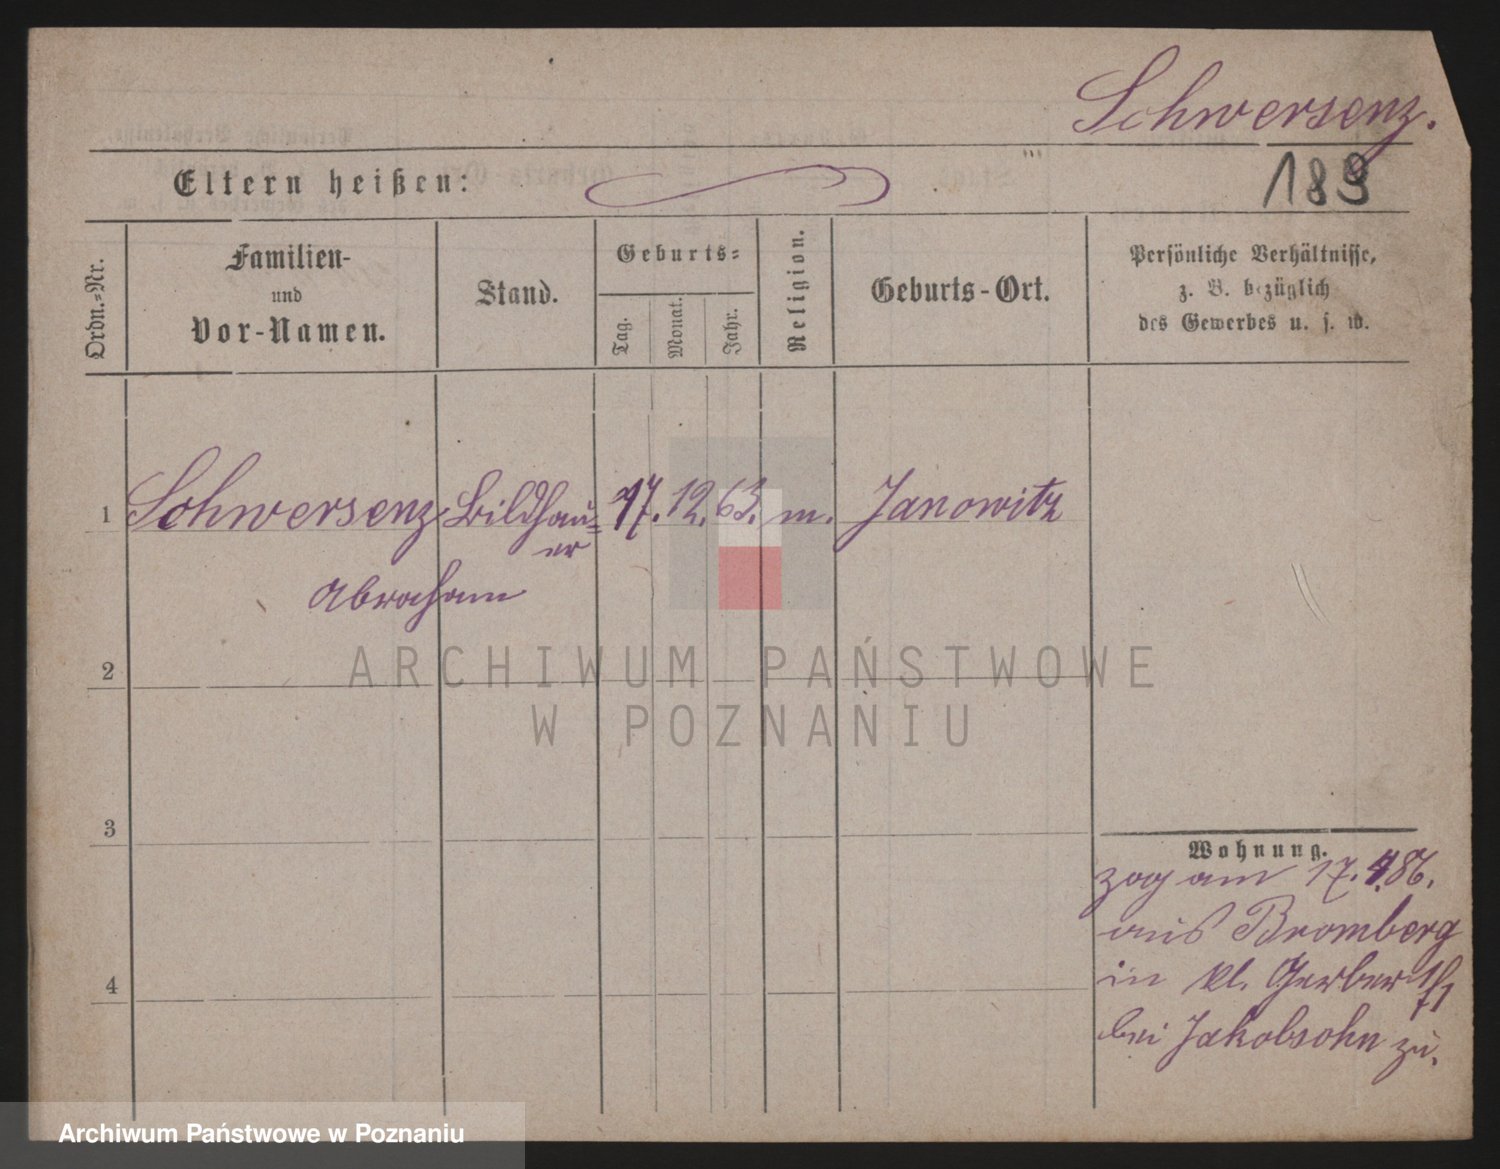 Schwersenz.
189
Eltern heißen:
Ordn.=Nr.
Familien-
und
Vor-Namen.
Stand.
Geburts=
Tag.
Monat.
Jahr.
Religion.
Geburts-Ort.
Persönliche Verhältnisse,
z. B. bezüglich
des Gewerbes u. s. w.
1 Schwersenz Bildhau= 17. 12. 63. m. Janowitz
er
Abraham
2
3
4
Wohnung.
zog am 17. 4. 86.
aus Bromberg
in kl. Gerber
bei Jakobsohn zu.
ARCHIWUM PAŃSTWOWE
W POZNANIU
Archiwum Państwowe w Poznaniu